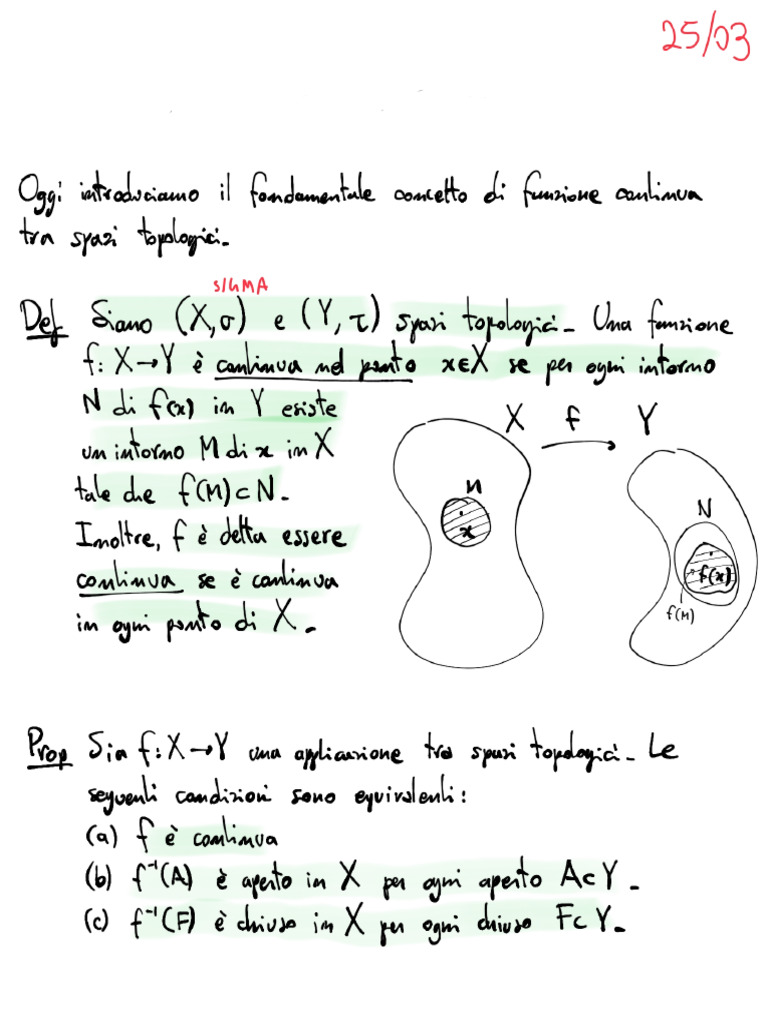 25/03
Oggi introduciamo il fondamentale concetto di funzione continua
tra spazi topologici.
SIGMA
Def Siano (X,σ) e (Y,τ) spazi topologici. Una funzione
f: X→Y è continua nel punto x∈X se per ogni intorno
N di f(x) in Y esiste
un intorno M di x in X
tale che f(M)⊂N.
Inoltre, f è detta essere
continua se è continua
in ogni punto di X.
X f Y
M
x
N
f(x)
f(M)
Prop Sia f: X→Y una applicazione tra spazi topologici. Le
seguenti condizioni sono equivalenti:
(a) f è continua
(b) f⁻¹(A) è aperto in X per ogni aperto A⊂Y.
(c) f⁻¹(F) è chiuso in X per ogni chiuso F⊂Y.